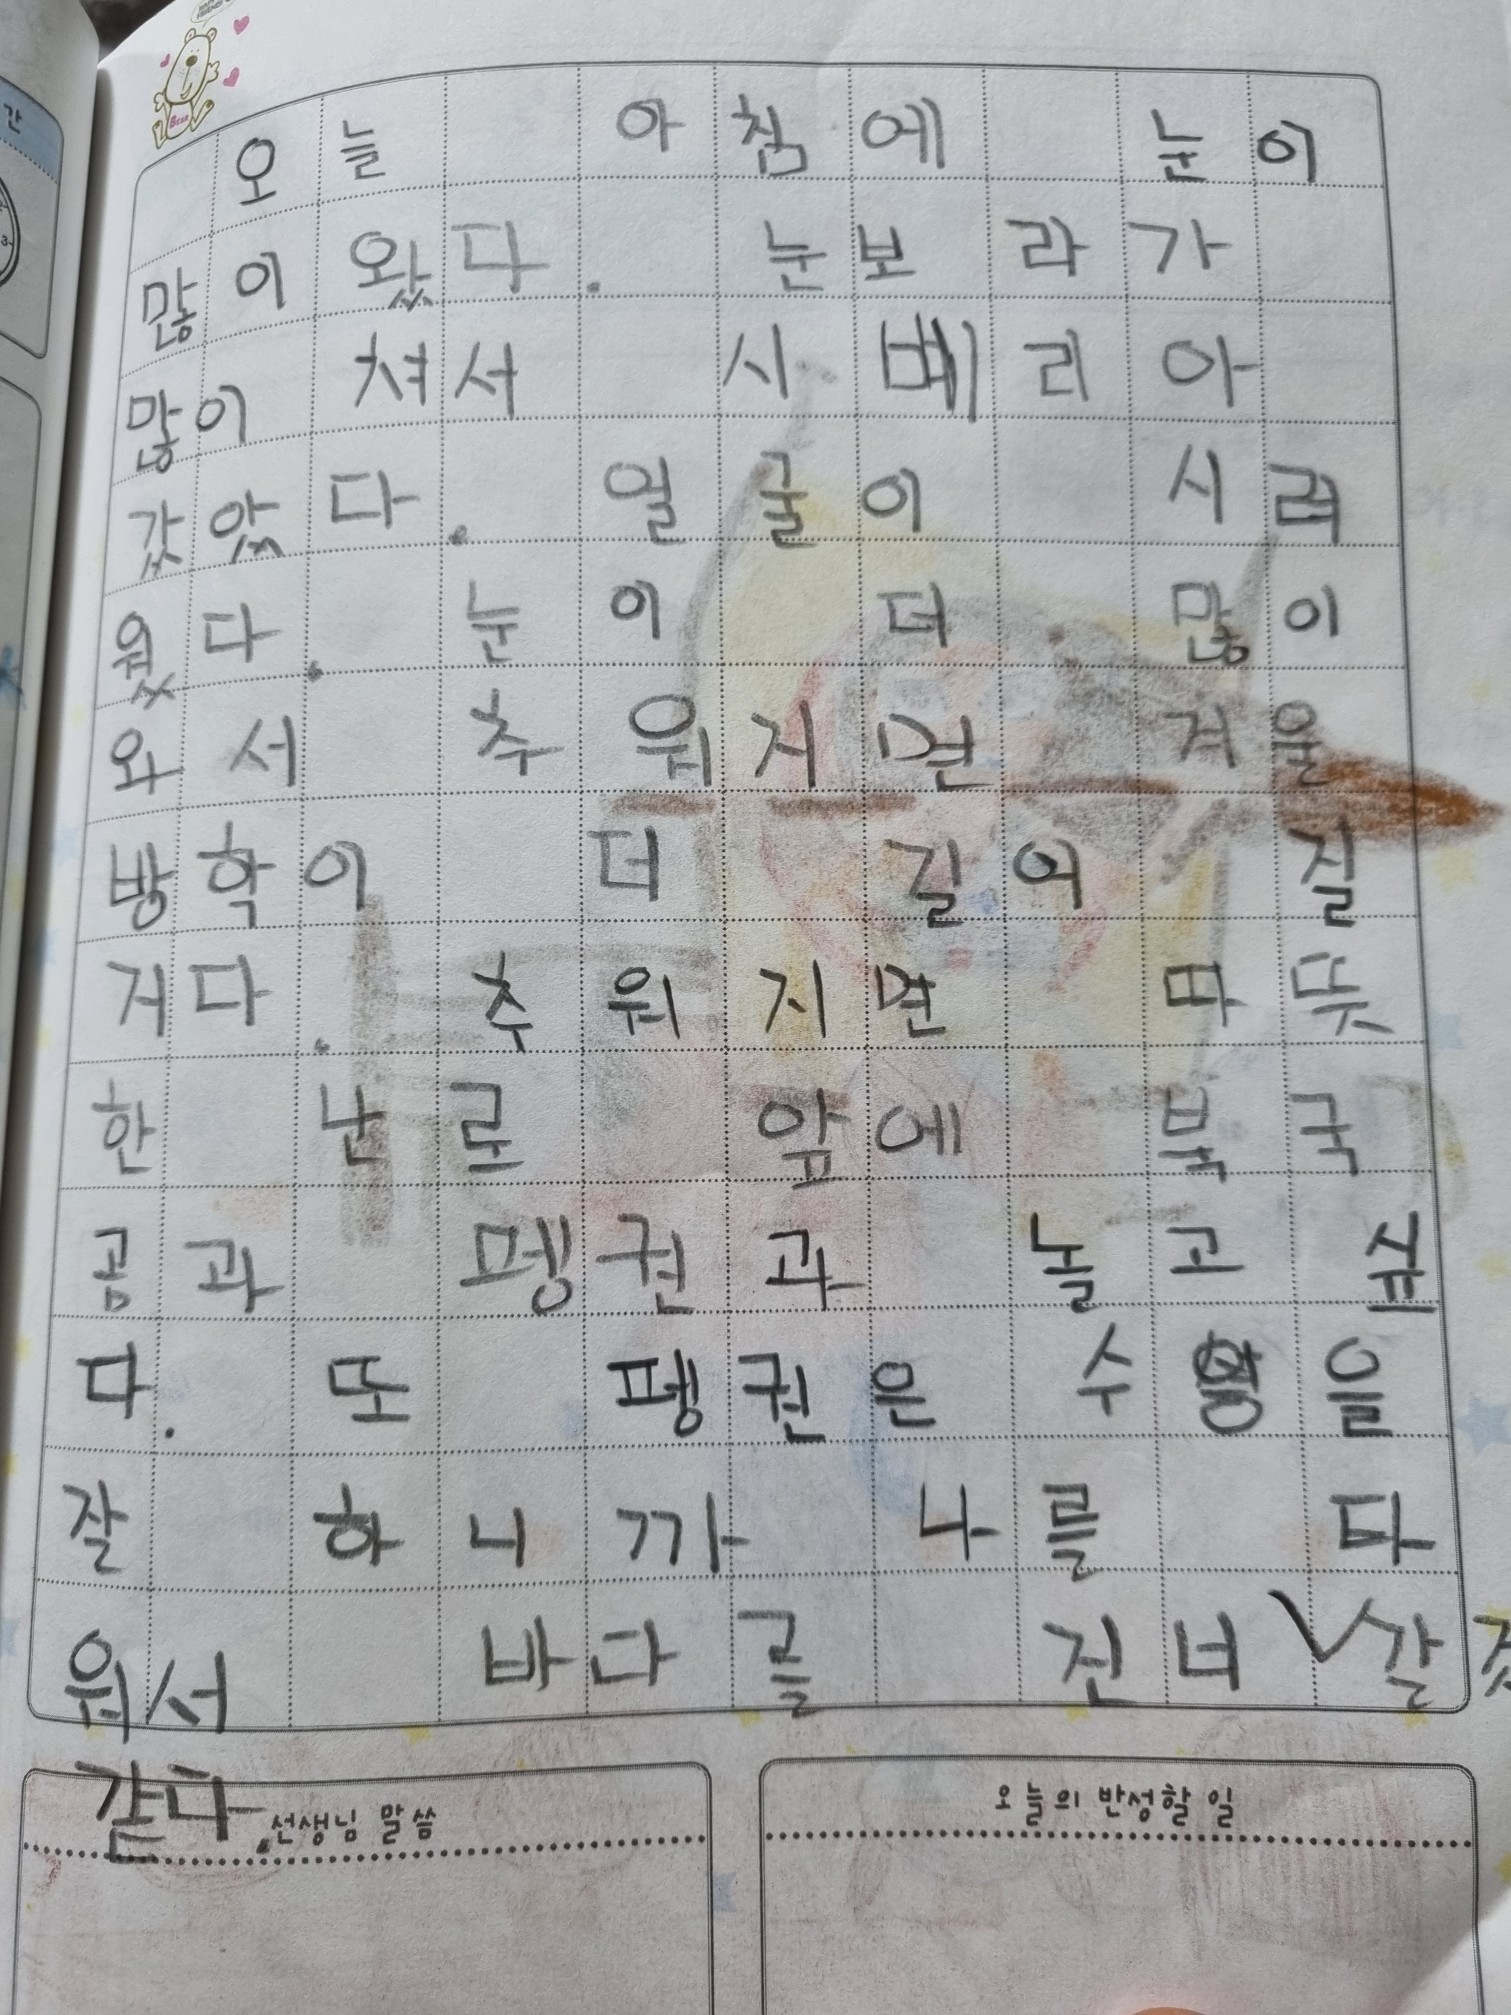 간
오늘 아침에 눈이
많이 왔다. 눈보라가
많이 쳐서 시베리아
갔았다. 얼굴이 시려
웠다. 눈이 더 많이
와서 추워지면 겨울
방학이 더 길어 질
거다. 추워지면 따뜻
한 난로 앞에 북국
곰과 펭귄과 놀고 싶
다. 또 펭귄은 수영을
잘 하니까 나를 태
워서 바다를 건너 갈 것
같다.
선생님 말씀
오늘의 반성할 일
Bear